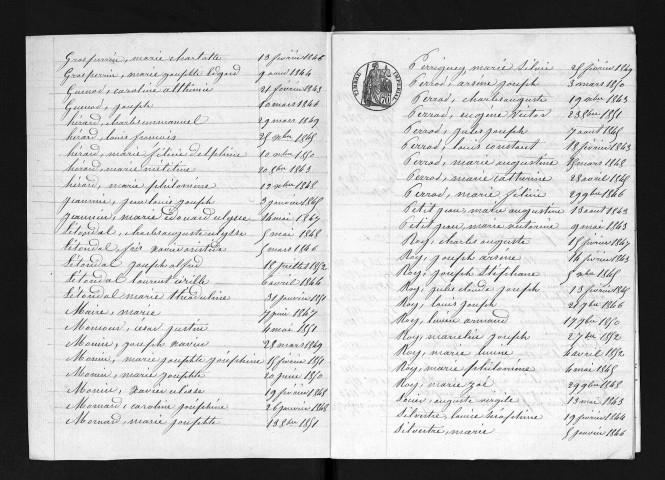 Grosperrin, marie charlotte 13 février 1846
Grosperrin, marie josephte Légard 9 août 1844
Guenod, caroline althémie 21 février 1843
Guenod, joseph 10 mars 1846
hérard, charles emmanuel 29 mars 1849
hérard, louis francois 25 xbre 1848
hérard, marie féline delphine 10 octobre 1850
hérard, marie mélitine 20 8bre 1843
hérard, marie philomène 12 octobre 1848
Jeannin, jean louis joseph 3 janvier 1848
Jeannin, marie Edouard ulysse 24 mai 1847
Létondal, charles auguste ulysse 5 mai 1848
Létondal, frs xavier aristide 5 mars 1846
Létondal joseph alfred 18 juillet 1852
Létondal laurent virille 6 avril 1846
Létondal marie Stradeline 31 janvier 1851
Maire, marie 7 juin 1847
Monnier, cesar justin 4 mai 1851
Monin, joseph xavier 28 mars 1849
Monin, marie josephte joséphine 15 février 1851
Monin, marie josephte 20 juin 1850
Monin, xavier ulisse 19 février 1848
Mornard, caroline joséphine 26 janvier 1848
Mornard, marie josephte 13 8bre 1851
TIMBRE IMPERIAL
Perriguey marie Silvie 25 février 1849
Perrod, arsène joseph 3 mars 1850
Perrod, charles auguste 19 octobre 1843
Perrod, eugène Victor 23 8bre 1851
Perrod, jules joseph 7 août 1848
Perrod, louis constant 18 février 1843
Perrod, marie augustine 18 mars 1848
Perrod, marie catherine 28 avril 1848
Perrod, marie félicie 29 9bre 1846
Petit jean, marie augustine 13 août 1843
Petit jean, marie victorine 9 mai 1843
Roy, charles auguste 15 février 1847
Roy, joseph arsène 14 février 1843
Roy, joseph Stéphane 5 xbre 1848
Roy, jules claude joseph 13 février 1848
Roy, louis joseph 21 9bre 1846
Roy, lucien armand 17 9bre 1850
Roy, marcelin joseph 27 8bre 1852
Roy, marie 6 avril 1852
Roy, marie philomène 4 mai 1848
Roy, marie zoé 29 9bre 1848
auguste virgile 13 mai 1843
Silvestre, louise Séraphine 19 février 1844
Silvestre, marie 5 janvier 1846